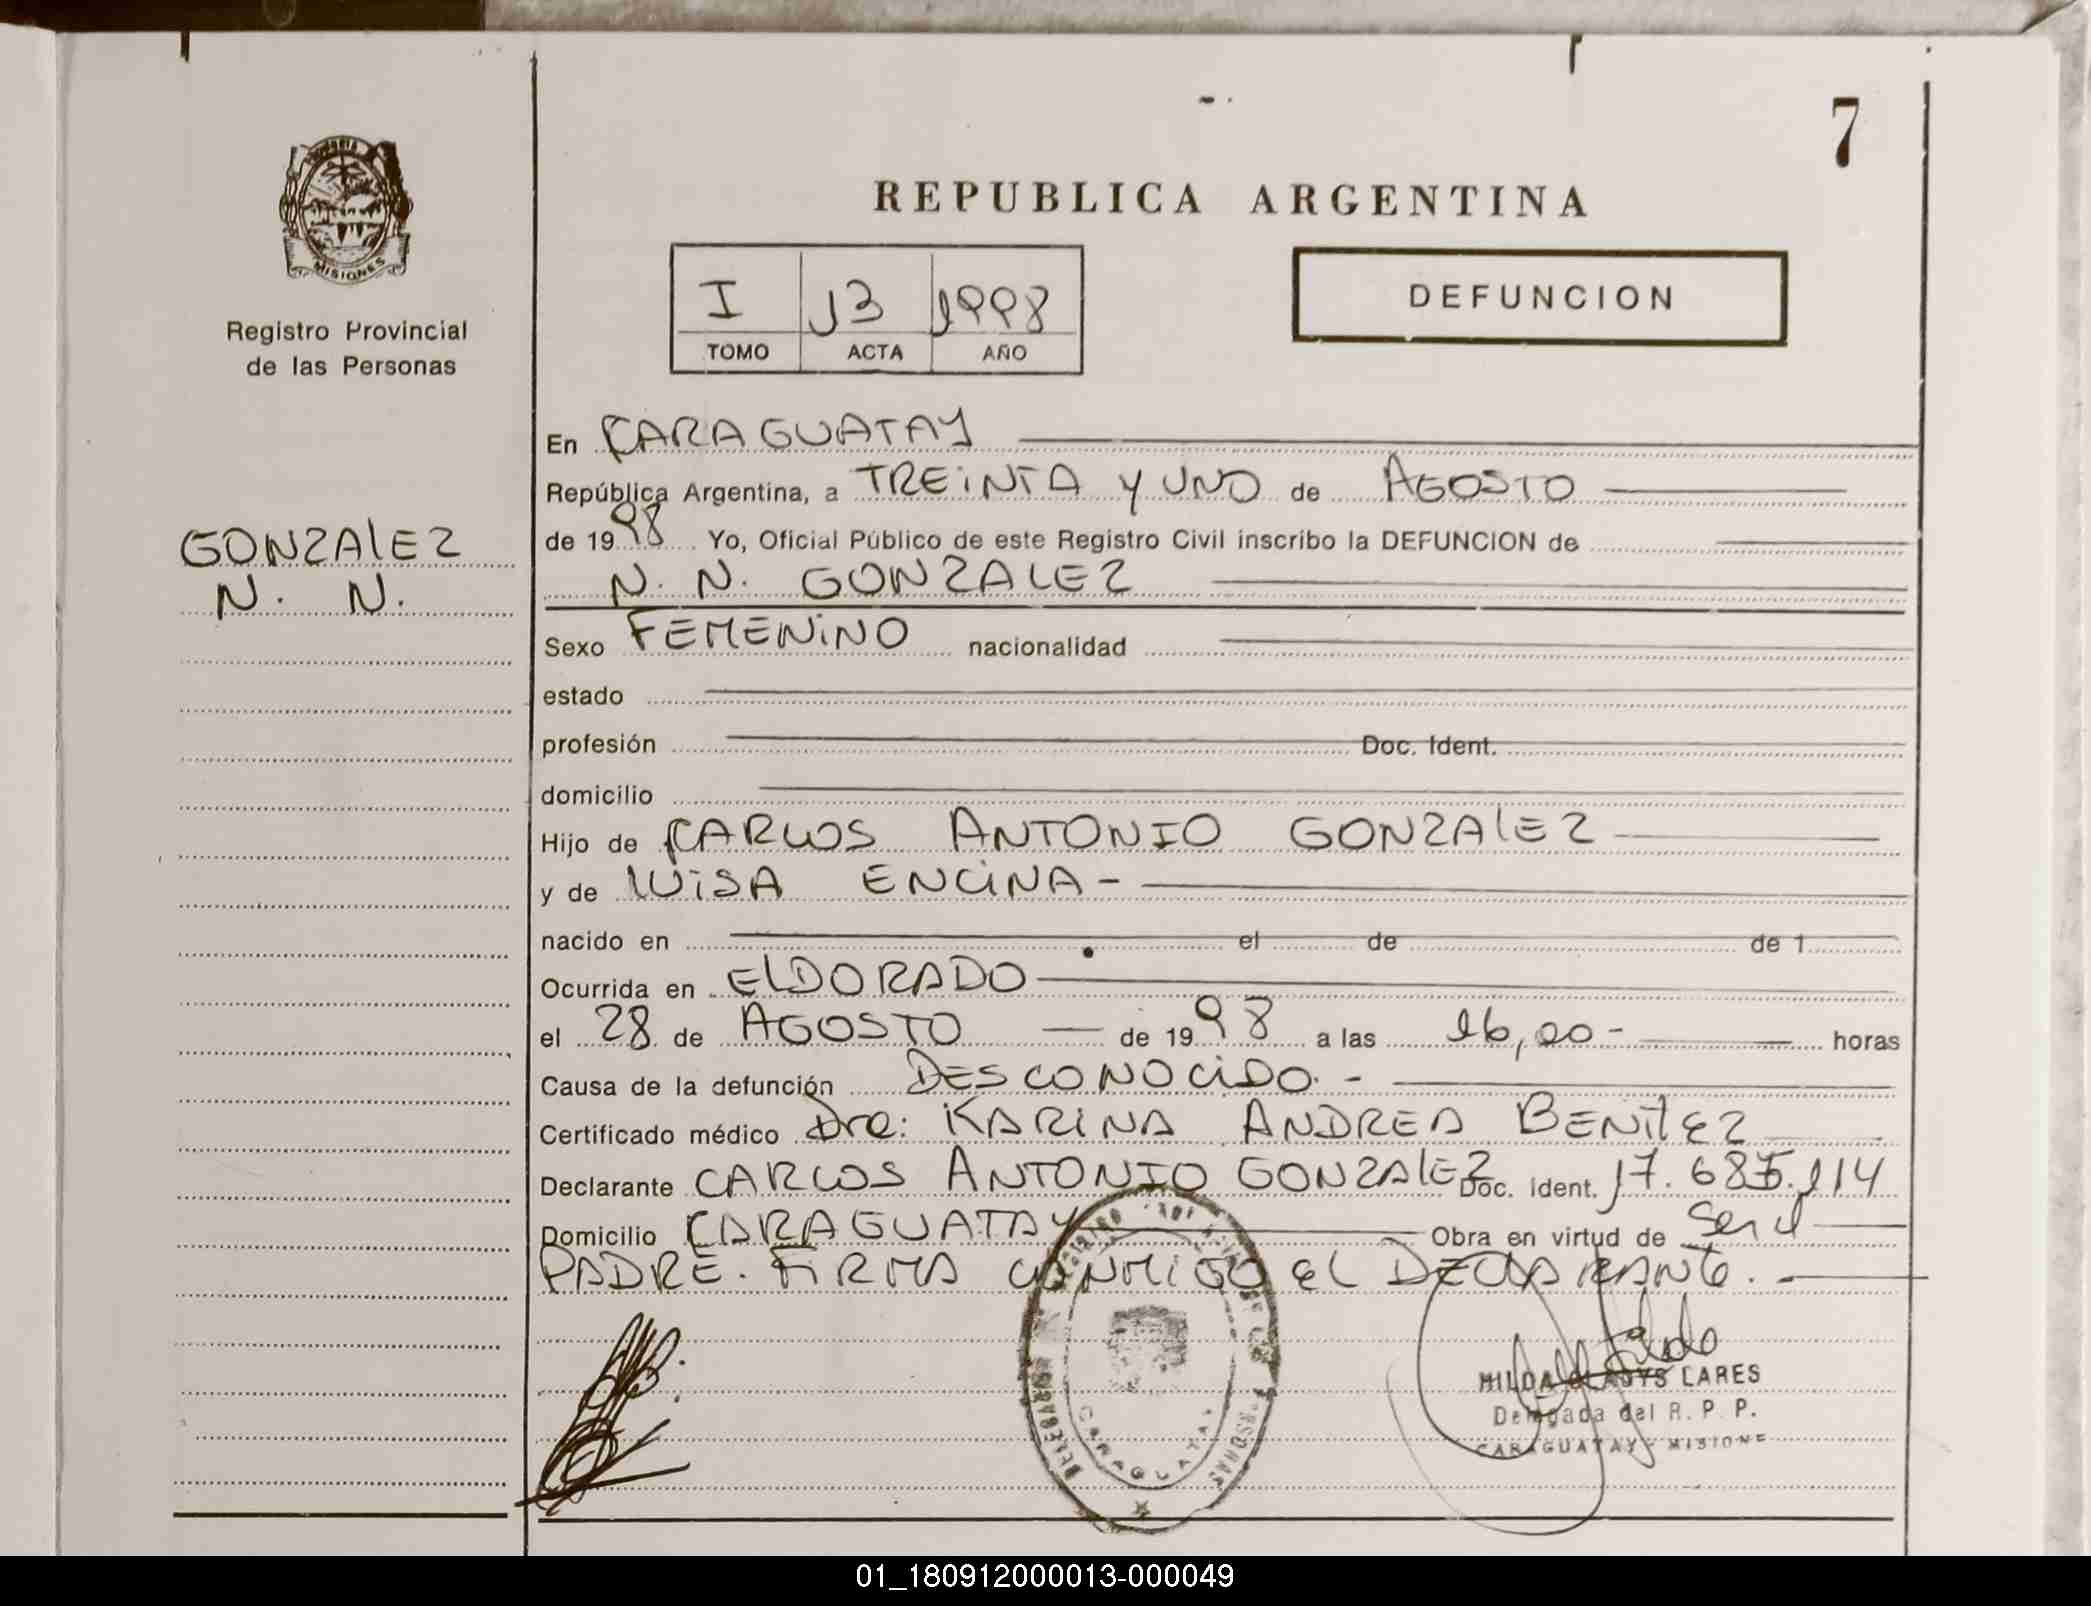 7
PROVINCIA
MISIONES
Registro Provincial
de las Personas
REPUBLICA ARGENTINA
I 13 1998
TOMO ACTA AÑO
DEFUNCION
GONZALEZ
N. N.
En CARAGUATAY
República Argentina, a TREINTA Y UNO de AGOSTO
de 1998 Yo, Oficial Público de este Registro Civil inscribo la DEFUNCION de
N. N. GONZALEZ
Sexo FEMENINO nacionalidad
estado
profesión Doc. Ident.
domicilio
Hijo de CARLOS ANTONIO GONZALEZ
y de LUISA ENCINA-
nacido en el de de 1
Ocurrida en ELDORADO
el 28 de AGOSTO de 1998 a las 16,00- horas
Causa de la defunción DESCONOCIDO.-
Certificado médico Dra: KARINA ANDREA BENITEZ
Declarante CARLOS ANTONIO GONZALEZ Doc. Ident. 17.685.114
Domicilio CARAGUATAY Obra en virtud de Ser el
PADRE. FIRMA CONMIGO EL DECLARANTE.-
CARAGUATAY
HILDA GLADYS LARES
Delegada del R. P. P.
CARAGUATAY - MISIONE
01_180912000013-000049